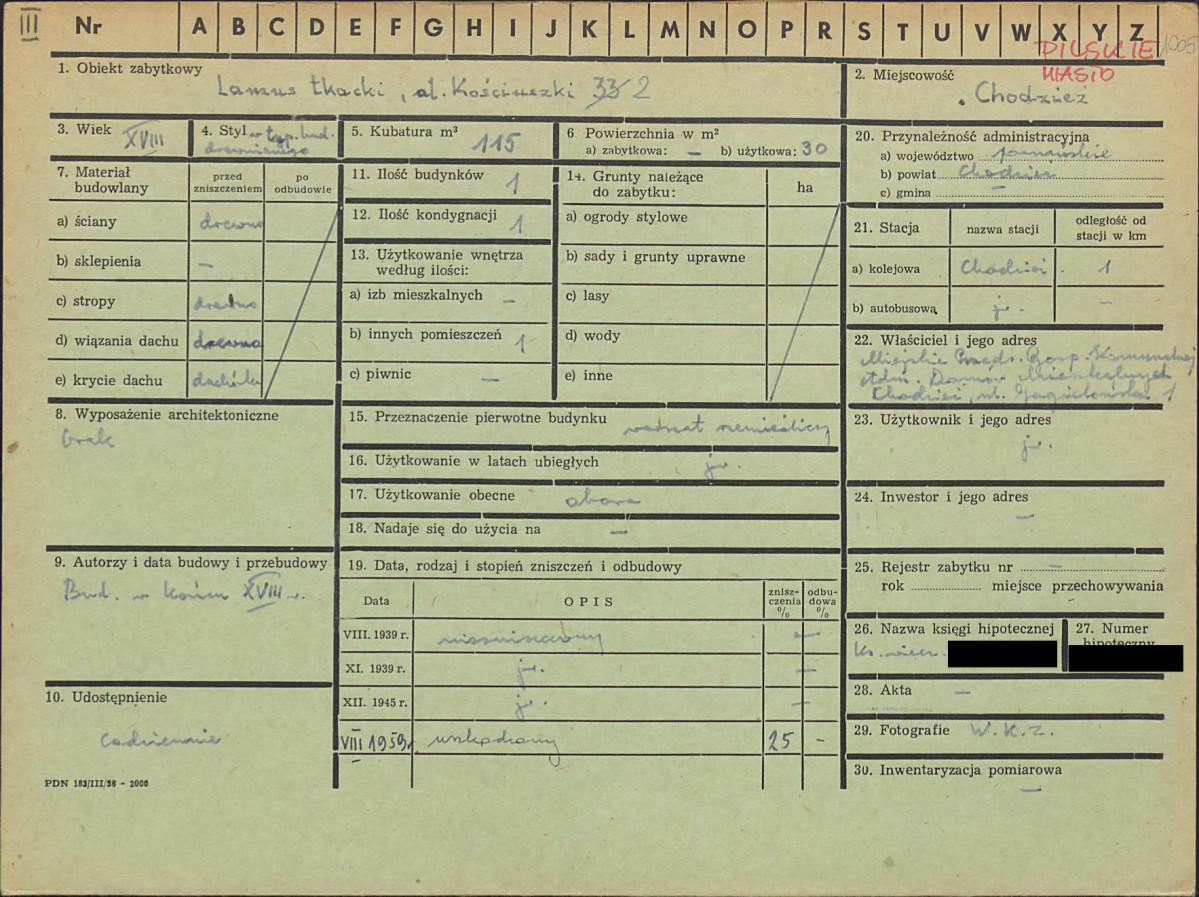 III Nr A B C D E F G H I J K L M N O P R S T U V W X Y Z
PILSKIE 1005
MIASTO
1. Obiekt zabytkowy
Lamus tkacki, al. Kościuszki 33 2
2. Miejscowość
Chodzież
3. Wiek XVIII
4. Styl w typ. bud.
drewnianego
5. Kubatura m³ 115
6 Powierzchnia w m²
a) zabytkowa: — b) użytkowa: 30
7. Materiał budowlany
przed zniszczeniem
po odbudowie
a) ściany drewno
b) sklepienia —
c) stropy drewno
d) wiązania dachu drewno
e) krycie dachu dachówka
8. Wyposażenie architektoniczne
brak
9. Autorzy i data budowy i przebudowy
Bud. w końcu XVIII w.
10. Udostępnienie
codziennie
PDN 183/III/58 - 2000
11. Ilość budynków 1
12. Ilość kondygnacji 1
13. Użytkowanie wnętrza
według ilości:
a) izb mieszkalnych —
b) innych pomieszczeń 1
c) piwnic —
14. Grunty należące
do zabytku:
ha
a) ogrody stylowe
b) sady i grunty uprawne
c) lasy
d) wody
e) inne
15. Przeznaczenie pierwotne budynku warsztat rzemieślniczy
16. Użytkowanie w latach ubiegłych jw.
17. Użytkowanie obecne obora
18. Nadaje się do użycia na —
19. Data, rodzaj i stopień zniszczeń i odbudowy
Data OPIS znisz-czenia % odbu-dowa %
VIII. 1939 r. niezniszczony —
XI. 1939 r. jw. —
XII. 1945 r. jw. —
VIII 1959r. uszkodzony 25 -
20. Przynależność administracyjna
a) województwo poznańskie
b) powiat Chodzież
c) gmina —
21. Stacja
nazwa stacji
odległość od
stacji w km
a) kolejowa Chodzież 1
b) autobusowa jw. —
22. Właściciel i jego adres
Miejskie Przeds. Gosp. Komunalnej
Adm. Domów Mieszkalnych
Chodzież, ul. Jagiellońska 1
23. Użytkownik i jego adres
jw.
24. Inwestor i jego adres
—
25. Rejestr zabytku nr —
rok miejsce przechowywania
26. Nazwa księgi hipotecznej
Ks. wiecz.
27. Numer
hipoteczny
28. Akta —
29. Fotografie W.K.Z.
30. Inwentaryzacja pomiarowa
—